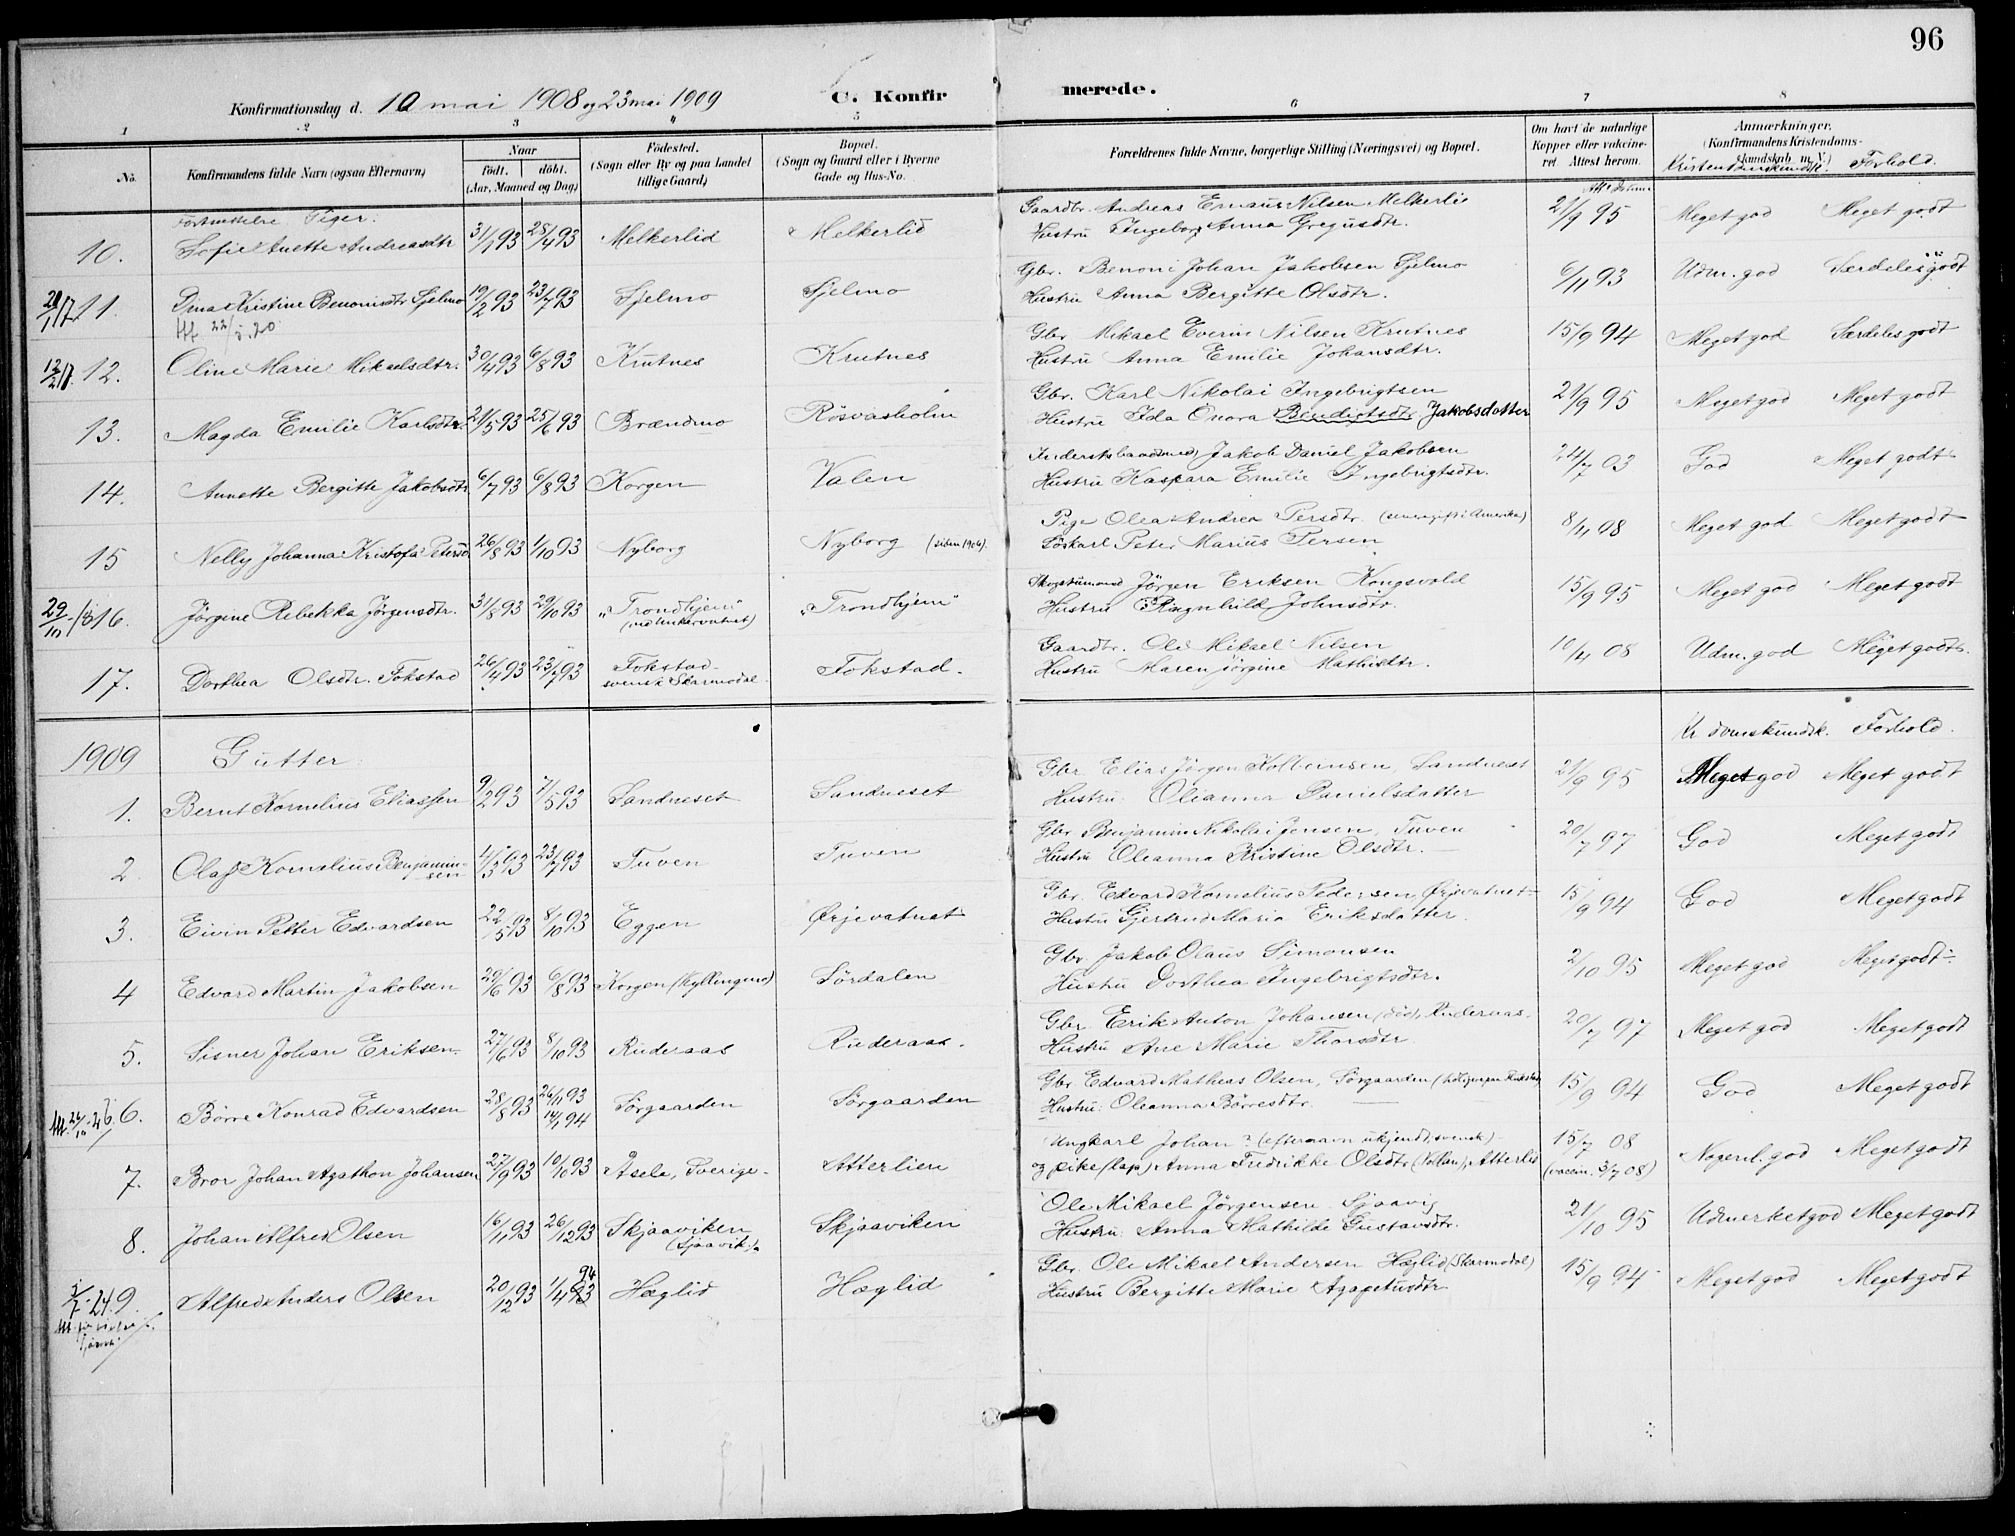 96
Konfirmationsdag d. 10 mai 1908 og 23 mai 1909 C. Konfirmerede.
1 2 3 4 5 6 7 8
No. Konfirmandens fulde Navn (ogsaa Efternavn) Naar födt. döbt. (Aar, Maaned og Dag) Födested. (Sogn eller By og paa Landet tillige Gaard) Bopæl. (Sogn og Gaard eller i Byerne Gade og Hus-No. Forældrenes fulde Navne, borgerlige Stilling (Næringsvei) og Bopæl. Om havt de naturlige Kopper eller vaccineret Attest herom. Anmærkninger. (Konfirmandens Kristendomskundskab m. V.) Kristendomskundsk. Forhold.
Fortsættelse Piger.
10. Sofie Anette Andreasdtr 31/1 93 28/4 93 Melkerlid Melkerlid Gaardbr. Andreas Emaus Nilsen Melkerlie 21/9 95 Meget god Meget godt
Hustru Ingeborg Anna Gregusdtr.
11. Dina Kristine Benonisdtr Sjelmo 19/2 93 23/7 93 Sjelmo Sjelmo Gbr. Benoni Johan Jakobsen Sjelmo 6/11 93 Udm. god Særdeles godt
Att. 22/5.20 Hustru Anna Bergitte Olsdtr.
12/2 17. 12. Oline Marie Mikaelsdtr. 30/4 93 6/8 93 Krutnes Krutnes Gbr Mikael Everin Nilsen Krutnes 15/9 94 Meget god Særdeles godt
Hustru Anna Emilie Johansdtr.
13. Magda Emilie Karlsdtr. 21/5 93 25/6 93 Brændmo Rösvasholm Gbr. Karl Nikolai Ingebrigtsen 21/9 95 Meget god Meget godt
Hustru Ida Onora Bendigtsdtr Jakobsdatter
14. Annette Bergitte Jakobsdtr 6/7 93 6/8 93 Korgen Valen Jakob Daniel Jakobsen 24/7 03 God Meget godt
Hustru Kaspara Emilie Ingebrigtsdtr.
15 Nelly Johanna Kristofa Petersd 26/8 93 1/10 93 Nyborg Nyborg (siden 1906). Pige Olea Andrea Persdtr. (senere gift i Amerika) 8/11 08 Meget god Meget godt
Löskarl Peter Marius Persen
29/10 18 16. Jörgine Rebekka Jörgensdtr. 31/8 93 29/10 93 "Trondhjem" (ved Unkervatnet) "Trondhjem" Jörgen Eriksen Kongsvold 15/9 95 Meget god Meget godt
Hustru Ragnhild Johnsdtr.
17. Dorthea Olsdtr. Fokstad 26/4 93 23/7 93 Fokstad svensk Skarmodal Fokstad. Gaardbr. Ole Mikael Nilsen 10/4 08 Udm. god Meget godt.
Hustru Maren Jörgine Mathisdtr.
1909 Gutter Kr domskundsk. Forhold.
1. Bernt Kornelius Eliassen 9/2 93 7/5 93 Sandneset Sandneset Gbr Elias Jörgen Kolbernsen, Sandneset 21/9 95 Meget god Meget godt
Hustru: Olianna Danielsdatter
2. Olaf Kornelius Benjaminsen 11/3 93 23/7 93 Tuven Tuven Gbr. Benjamin Nikolai Jensen, Tuven 20/7 97 God Meget godt
Hustru Oleanna Kristine Olsdtr.
3. Eivin Petter Edvardsen 22/5 93 8/10 93 Eggen Ørjevatnet Gbr. Edvard Kornelius Pedersen, Ørjevatnet 15/9 94 God Meget godt
Hustru Gjertrud Maria Eriksdatter.
4 Edvard Martin Jakobsen 29/6 93 6/8 93 Korgen (Kyllingmo) Sördalen Gbr Jakob Olaus Simonsen 2/10 95 Meget god Meget godt
Hustru Dorthea Ingebrigtsdtr.
5. Sisner Johan Eriksen 27/6 93 8/10 93 Ruderaas Ruderaas. Gbr Erik Anton Johansen (död), Ruderaas. 20/7 97 Meget god Meget godt
Hustru Ane Marie Thorsdtr
6. Börre Konrad Edvardsen 28/8 93 26/11 93 14/1 94 Sörgaarden Sörgaarden Gbr. Edvard Matheas Olsen, Sörgaarden 15/9 94 God Meget godt
Hustru: Oleanna Börresdtr.
7. Bror Johan Agathon Johansen 27/9 93 10/10 93 Åsele, Sverige. Atterlien Ungkarl Johan ? (efternavn ukjendt, svensk) 15/7 08 Nogenl. god Meget godt
og pike (lap) Anna Fredrikke Olsdtr (Vollan), Atterlid (vaccin. 3/7 08)
8. Johan Alfred Olsen 16/11 93 26/12 93 Skjaaviken (Sjaavik) Skjaaviken Ole Mikael Jörgensen Sjaavig 21/10 95 Udmerket god Meget godt
Hustru: Anna Mathilde Gustavsdtr.
9. Alfred Anders Olsen 20/12 93 1/4 93 94 Hæglid Hæglid Gbr. Ole Mikael Andersen Hæglid (Skarmodal) 15/9 94 Meget god Meget godt
Hustru Bergitte Marie Agapetusdtr